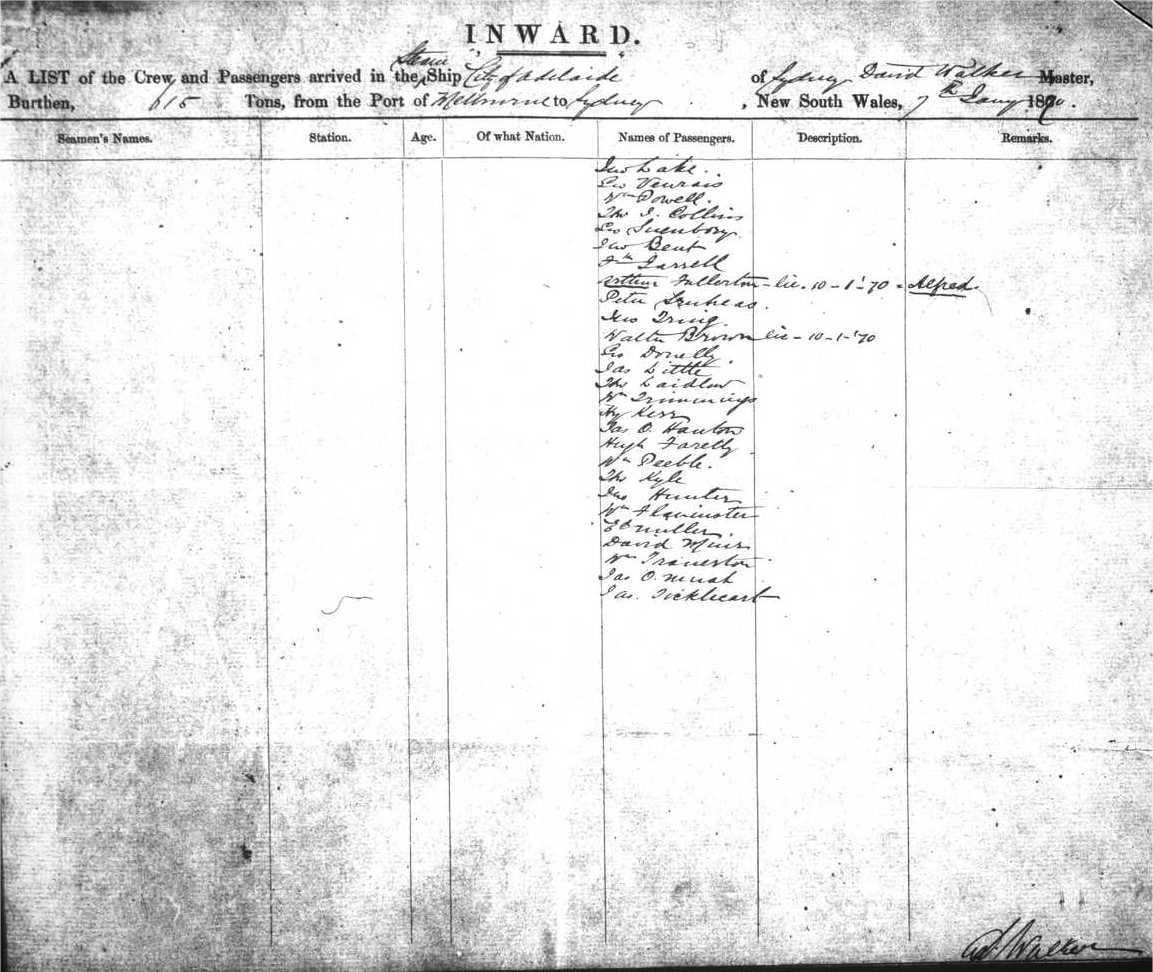 INWARD.
Steam
A LIST of the Crew and Passengers arrived in the Ship City of Adelaide of Sydney David Walker Master,
Burthen, 615 Tons, from the Port of Melbourne to Sydney, New South Wales, 7th Jany 1870.
Seamen's Names. Station. Age. Of what Nation. Names of Passengers. Description. Remarks.
Jno Lake.
Geo
Wm Powell.
Thos J. Collins
Geo
Jno Bent
Farrell
Arthur Fullerton - lic. 10-1-'70 - Alfred.
Peter
Jno
Walter Brown lic - 10-1-'70
Geo Donelly.
Jas Little
Thos Laidlaw
Wm Trimmings
Hy Kerr
Jas O. Hanlon
Hugh Farelly
Wm Peeble.
Thos Kyle
Jno Hunter
Wm
Ed Miller.
David Muir
Wm Traverston
Jas O.
Jas.
Walker